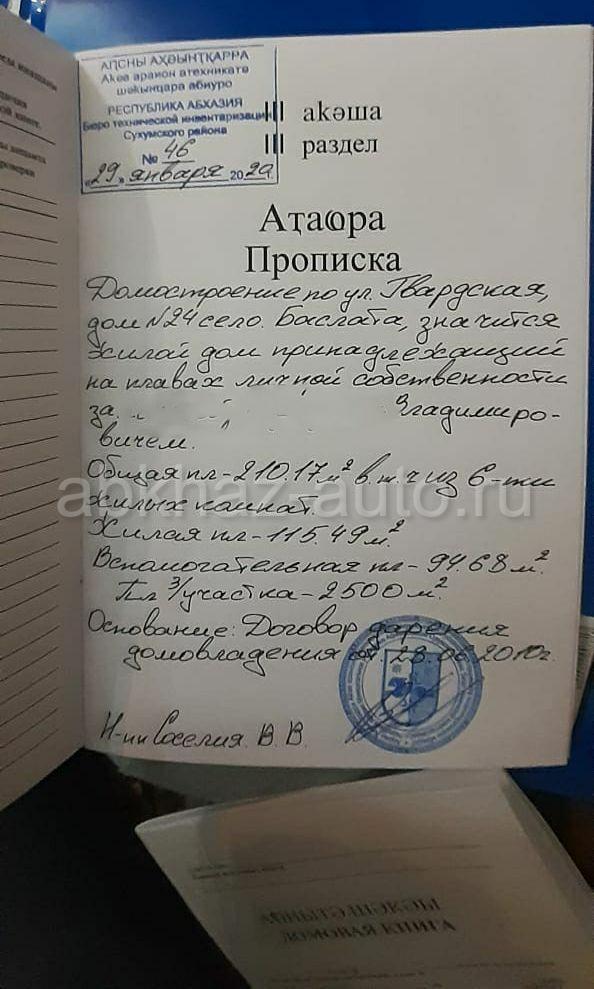 АԤСНЫ АҲӘЫНҬҚАРРА
Аҟәа араион атехникатә
шәҟынҵара абиуро
РЕСПУБЛИКА АБХАЗИЯ
Бюро технической инвентаризации
Сухумского района
№ 46
"29" января 2020.
III аҟәша
III раздел
Аҭаҩра
Прописка
Домостроение по ул. Гвардская,
дом №24 село. Баслата, значится
жилой дом принадлежащий
на правах личной собственности
за. Владимиро-
вичем.
Общая пл - 210.17м² в.т.ч из 6-ти
жилых комнат.
Жилая пл - 115.49м²
Вспомогательная пл - 94.68м².
Пл з/участка - 2500м².
Основание: Договор дарения
домовладения от 2010г.
Н-ик В.В.
abkhaz-auto.ru
ДОМОВАЯ КНИГА